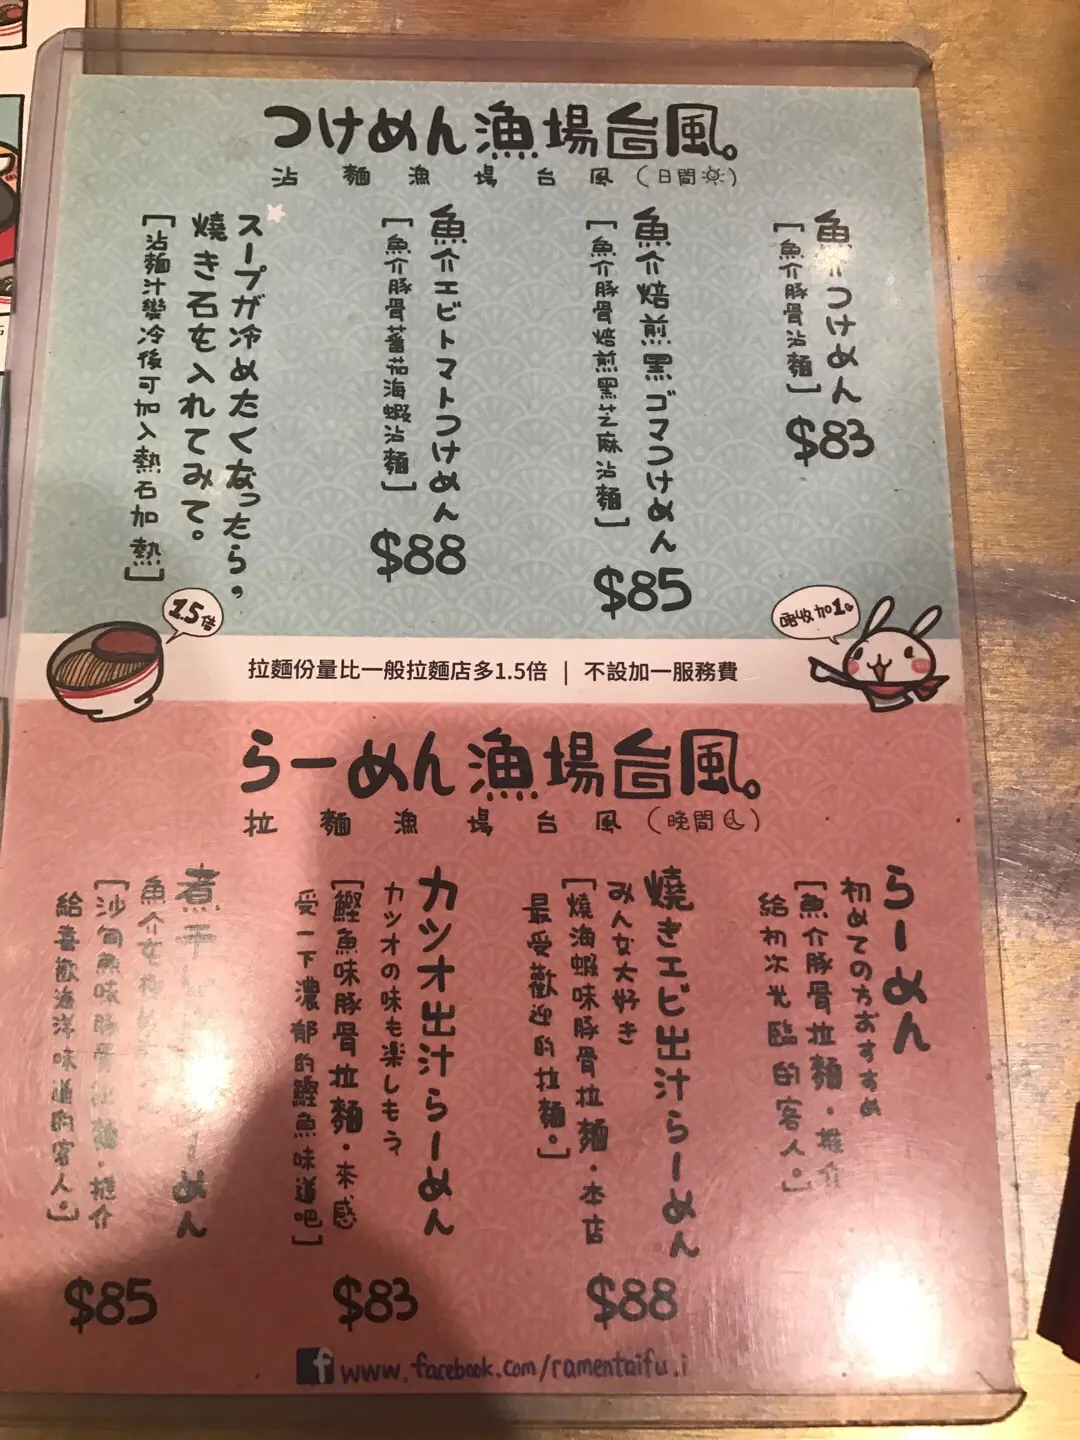 つけめん漁場台風。
沾麵漁場台風(日間)
魚介つけめん
[魚介豚骨沾麵]
$83
魚介焙煎黑ゴマつけめん
[魚介豚骨焙煎黑芝麻沾麵]
$85
魚介エビトマトつけめん
[魚介豚骨蕃茄海蝦沾麵]
$88
スープが冷めたくなったら,
燒き石を入れてみて。
[沾麵汁變冷後可加入熱石加熱]
1.5倍
唔收加1
拉麵份量比一般拉麵店多1.5倍 | 不設加一服務費
らーめん漁場台風。
拉麵漁場台風(晚間)
らーめん
初めての方おすすめ
[魚介豚骨拉麵·推介
給初次光臨的客人。]
燒きエビ出汁らーめん
みん女大好き
[燒海蝦味豚骨拉麵·本店
最受歡迎的拉麵。]
$88
カツオ出汁らーめん
カツオの味も楽しもう
[鰹魚味豚骨拉麵·來感
受一下濃郁的鰹魚味道吧]
$83
煮干しらーめん
魚介
[沙甸魚味豚骨拉麵·推介
給喜歡海洋味道的客人。]
$85
www.facebook.com/ramentaifu.i